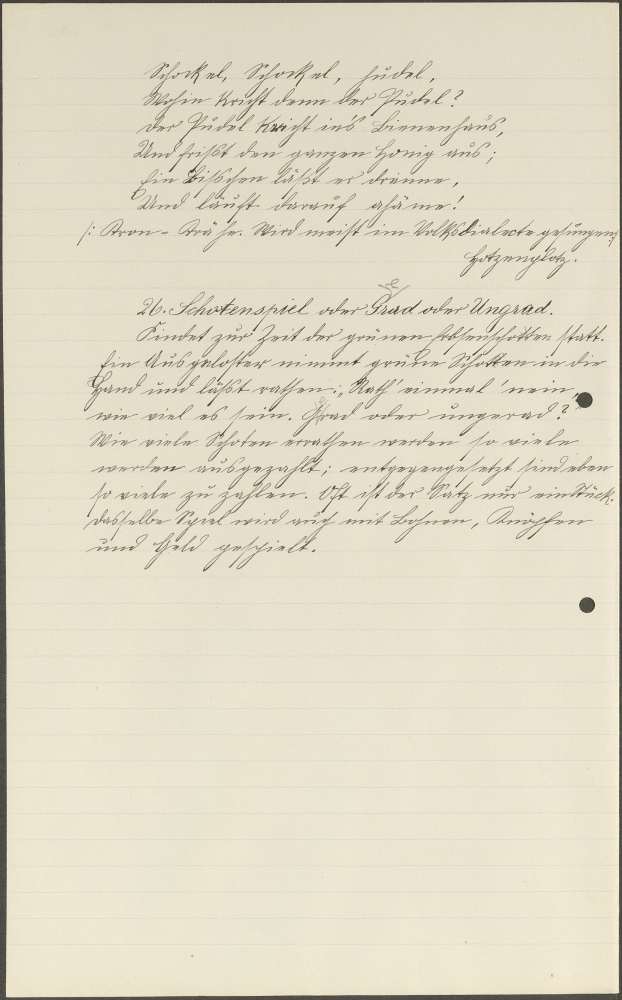 Schockel, Schockel, hudel,
Wohin kricht denn der Pudel?
Der Pudel kricht ins Bienenhaus,
Und frißt den ganzen Honig aus;
Ein Bißchen läßt er drinne,
Und läuft darauf ahäme!
/: Kron-Krähe. Wird meist im Volksdialecte gesungen.
Hotzenplotz.
26. Schotenspiel oder Grad oder Ungrad.
Findet zur Zeit der grünen Erbsenschoten statt.
Ein Ausgeloster nimmt grüne Schotten in die
Hand und läßt rathen: „Rath' einmal 'nein,
wie viel es sein. Grad oder ungerad?"
Wie viele Schoten errathen werden so viele
werden ausgezahlt; entgegengesetzt sind eben
so viele zu zahlen. Oft ist der Satz nur ein Stück.
Dasselbe Spiel wird auch mit Bohnen, Knöpfen
und Geld gespielt.